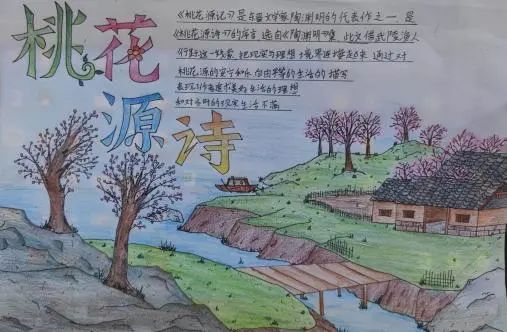 桃花源诗
《桃花源记》是东晋文学家陶渊明的代表作之一，是
《桃花源诗》的序言，选自《陶渊明集》。此文借武陵渔人
行踪这一线索，把现实和理想境界连接起来，通过对
桃花源的安宁和乐、自由平等的生活的描写
表现了作者追求美好生活的理想
和对当时的现实生活不满